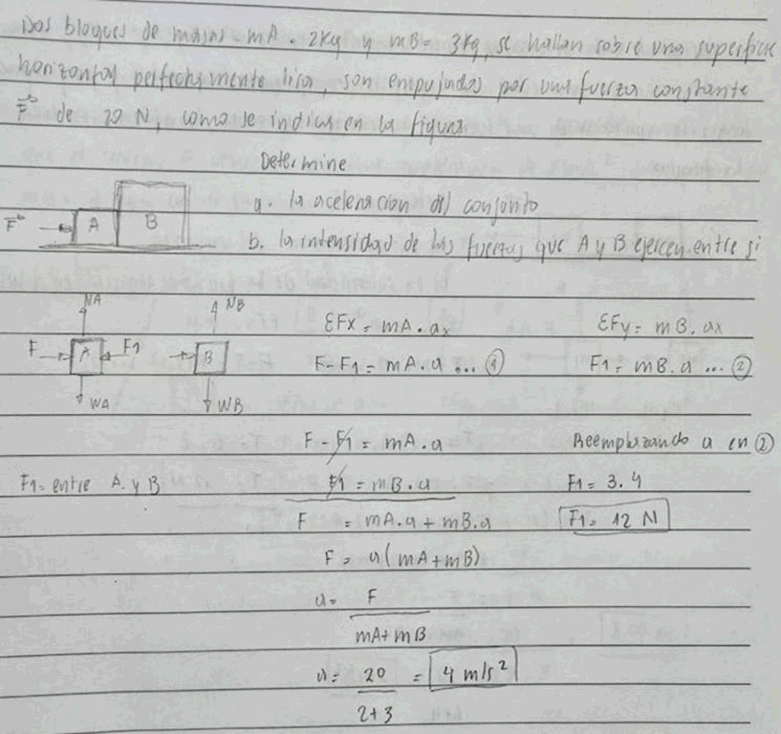 Dos bloques de masas mA = 2Kg y mB = 3Kg, se hallan sobre una superficie
horizontal perfectamente lisa, son empujados por una fuerza constante
F de 20 N, como se indica en la figura
Determine
a. la aceleracion del conjunto
b. la intensidad de las fuerzas que A y B ejercen entre si
F A B
NA NB
F A F1 B
WA WB
ΣFx = mA . ax ΣFy = mB . ax
F - F1 = mA . a ... ① F1 = mB . a ... ②
F - F1 = mA . a Reemplazando a en ②
F1 = entre A y B F1 = mB . a F1 = 3.4
F = mA.a + mB.a F1 = 12 N
F = a(mA+mB)
a = F
mA+mB
a = 20 = 4 m/s²
2+3